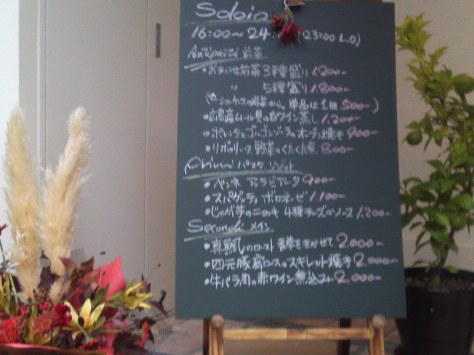 Soloio
16:00〜24:00 (23:00 L.O)
Antipasti 前菜
・おまかせ前菜3種盛り 1200-
〃 5種盛り 1800-
前菜から、単品は1種 500-
・広島産ムール貝の白ワイン蒸し 1,200-
・ポレンタとゴルゴンゾーラのオーブン焼き 900-
・リボリータ 野菜のくたくた煮 800-
Primi パスタ リゾット
・ペンネ アラビアータ 900-
・スパゲッティ ボロネーゼ 1,100-
・じゃが芋のニョッキ 4種チーズのソース 1,200-
Secondi メイン
・真鯛のロースト 香草をきかせて 2,000-
・四元豚肩ロースのスキレット焼き 2,000-
・牛バラ肉の赤ワイン煮込み 2,000-